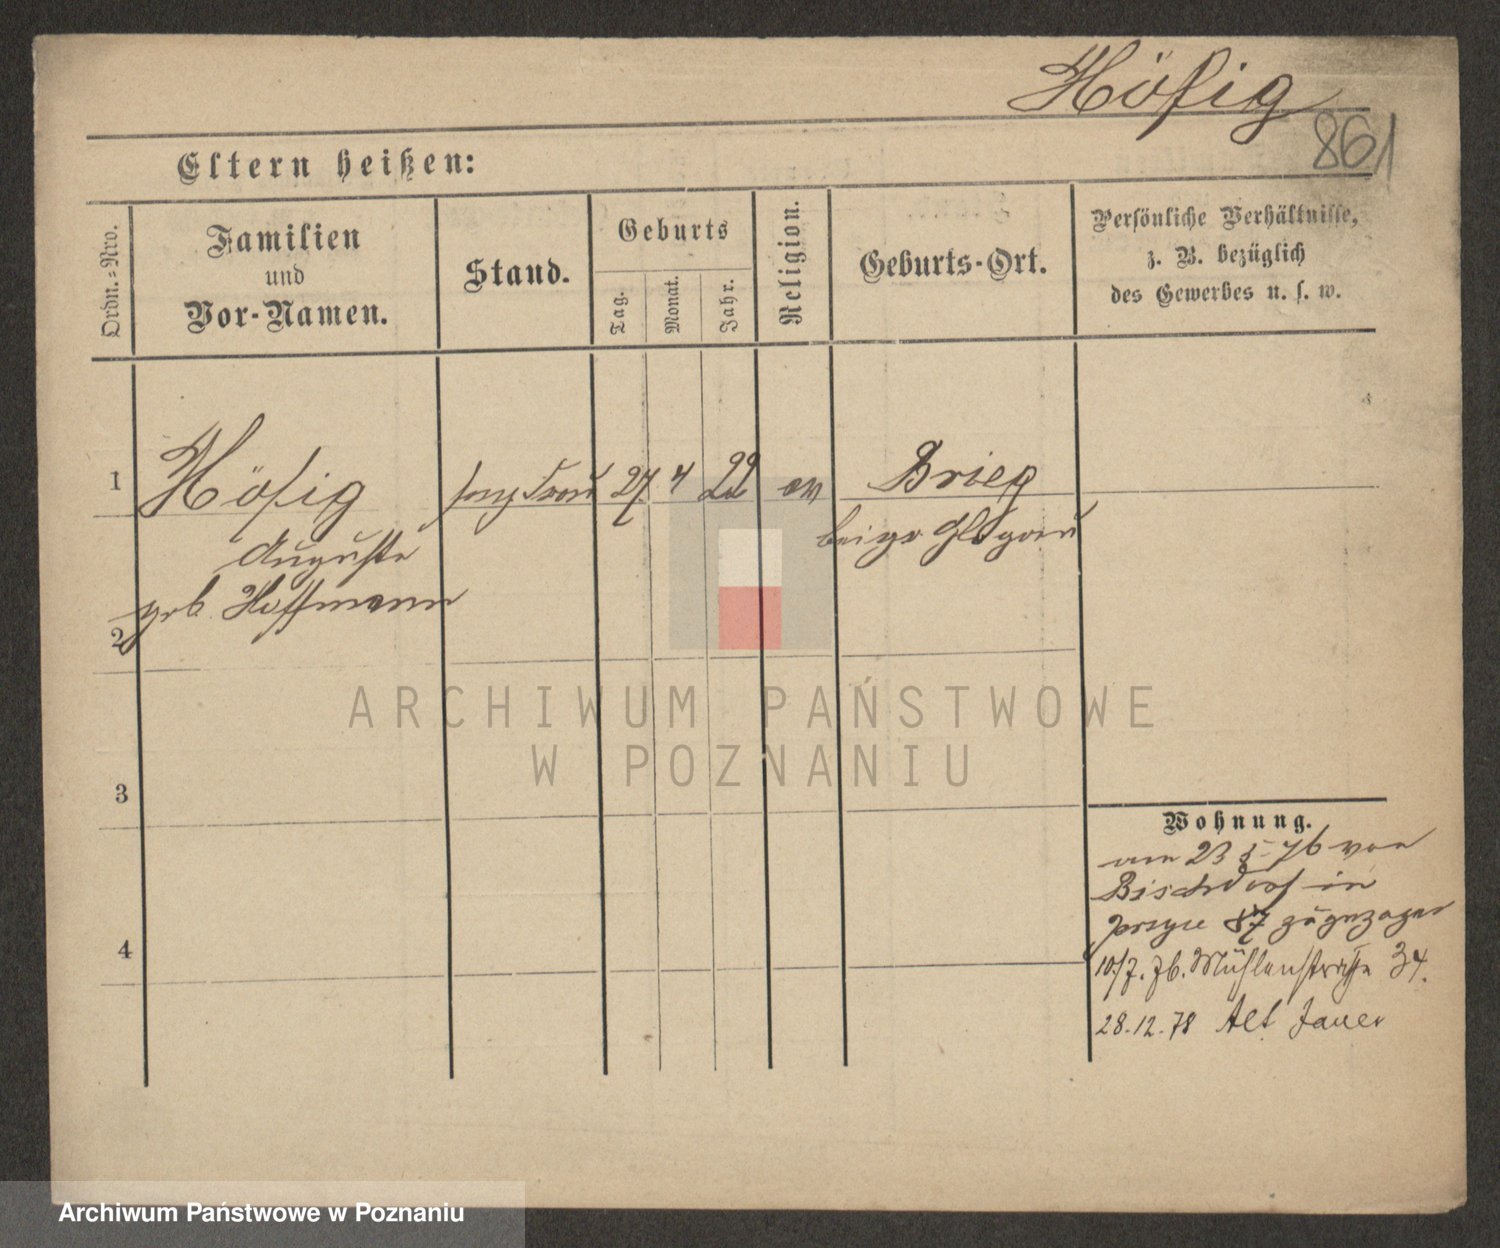 Höfig
861
Eltern heißen:
Ordn.=Nro.
Familien
und
Vor-Namen.
Stand.
Geburts
Tag.
Monat.
Jahr.
Religion.
Geburts-Ort.
Persönliche Verhältnisse,
z. B. bezüglich
des Gewerbes u. s. w.
1 Höfig 27 4 22 ev Brieg
Auguste bei gr Glogau
geb. Hoffmann
2
3
4
Wohnung.
am 23 5 76 von
Bischdorf in
87 zugezogen
10/7. 76. Mühlenstraße 34.
28.12.78 Alt Jauer
ARCHIWUM PAŃSTWOWE
W POZNANIU
Archiwum Państwowe w Poznaniu